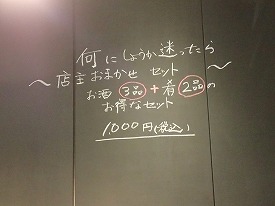 何にしようか迷ったら
～店主おまかせ セット～
お酒3品+肴2品の
お得なセット
1,000円(税込)